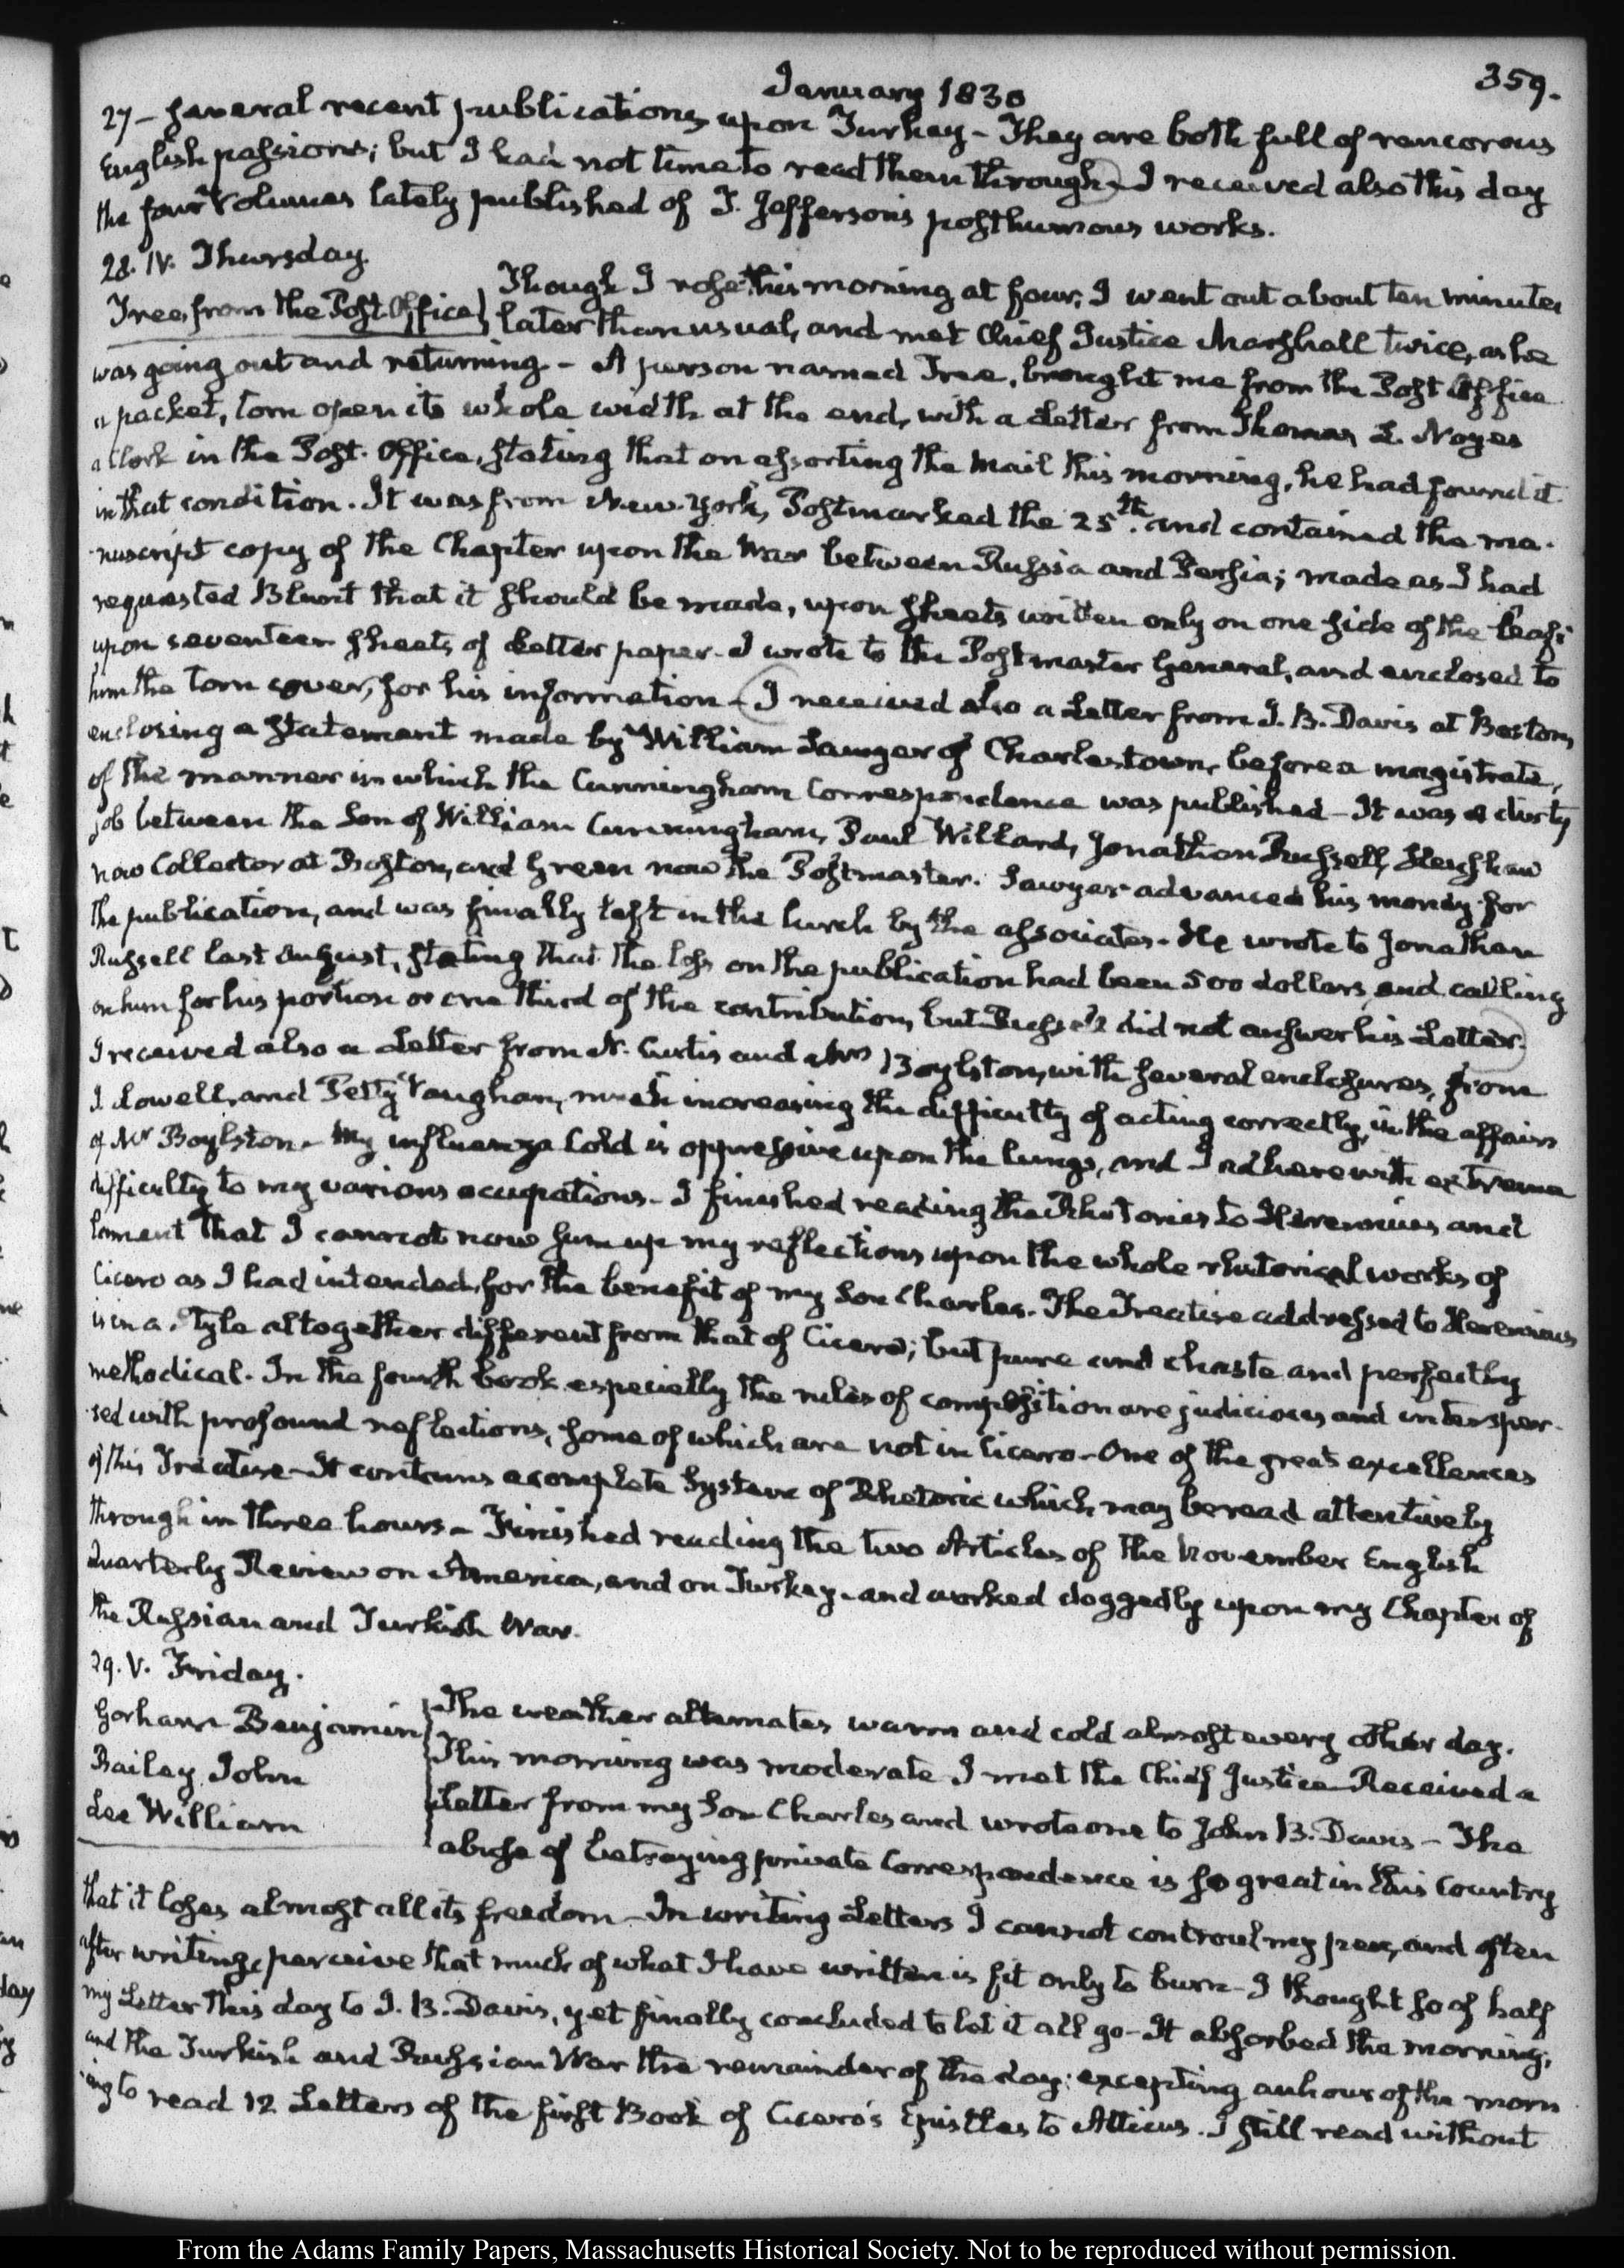 January 1830
359.
27 – several recent publications upon Turkey – They are both full of rancorous
English passions; but I had not time to read them through – I received also this day
the four Volumes lately published of T. Jefferson's posthumous works.
28. IV. Thursday.
Tree, from the Post Office
Though I rose this morning at four, I went out about ten minutes
later than usual, and met Chief Justice Marshall twice, as he
was going out and returning – A person named Tree, brought me from the Post Office
a packet, torn open its whole width at the end, with a Letter from Thomas L. Noyes
a Clerk in the Post-Office, stating that on assorting the Mail this morning, he had found it
in that condition. It was from New-York, Postmarked the 25th. and contained the ma-
nuscript copy of the Chapter upon the War between Russia and Persia; made as I had
requested Blunt that it should be made, upon sheets written only on one side of the leaf;
upon seventeen sheets of Letter paper – I wrote to the Postmaster General, and enclosed to
him the torn cover, for his information – I received also a Letter from J. B. Davis at Boston,
enclosing a statement made by William Sawyer of Charlestown, before a magistrate,
of the manner in which the Cunningham Correspondence was published – It was a dirty
job between the Son of William Cunningham, Paul Willard, Jonathan Russell, Henshaw
now Collector at Boston, and Green now the Postmaster. Sawyer advanced his money for
the publication, and was finally left in the lurch by the associates. He wrote to Jonathan
Russell last August, stating that the loss on the publication had been 500 dollars, and calling
on him for his portion or one third of the contribution, but Russell did not answer his Letter.
I received also a Letter from N. Curtis and Mrs Boylston, with several enclosures, from
J. Lowell, and Petty Vaughan, much increasing the difficulty of acting correctly, in the affairs
of Mr Boylston – My influenza Cold is oppressive upon the lungs, and I adhere with extreme
difficulty to my various occupations – I finished reading the Rhetorics to Herennius and
lament that I cannot now sum up my reflections upon the whole rhetorical works of
Cicero as I had intended, for the benefit of my Son Charles. The Treatise addressed to Herennius
is in a style altogether different from that of Cicero; but pure and chaste and perfectly
methodical. In the fourth book especially the rules of composition are judicious and intersper-
sed with profound reflections, some of which are not in Cicero – One of the great excellences
of this Treatise – It contains a complete System of Rhetoric which may be read attentively
through in three hours – Finished reading the two Articles of the November English
Quarterly Review on America, and on Turkey – and worked doggedly upon my Chapter of
the Russian and Turkish War.
29. V. Friday.
Gorham Benjamin
Bailey John
Lee William
The weather alternates warm and cold almost every other day.
This morning was moderate I met the Chief Justice – Received a
Letter from my Son Charles and wrote one to John B. Davis – The
abuse of betraying private Correspondence is so great in this Country
that it loses almost all its freedom – In writing Letters I cannot controul my pen, and often
after writing, perceive that much of what I have written is fit only to burn – I thought so of half
my Letter this day to J. B. Davis, yet finally concluded to let it all go – It absorbed the morning;
and the Turkish and Russian War the remainder of the day; excepting an hour of the morn
-ing to read 12 Letters of the first Book of Cicero's Epistles to Atticus. I still read without
From the Adams Family Papers, Massachusetts Historical Society. Not to be reproduced without permission.